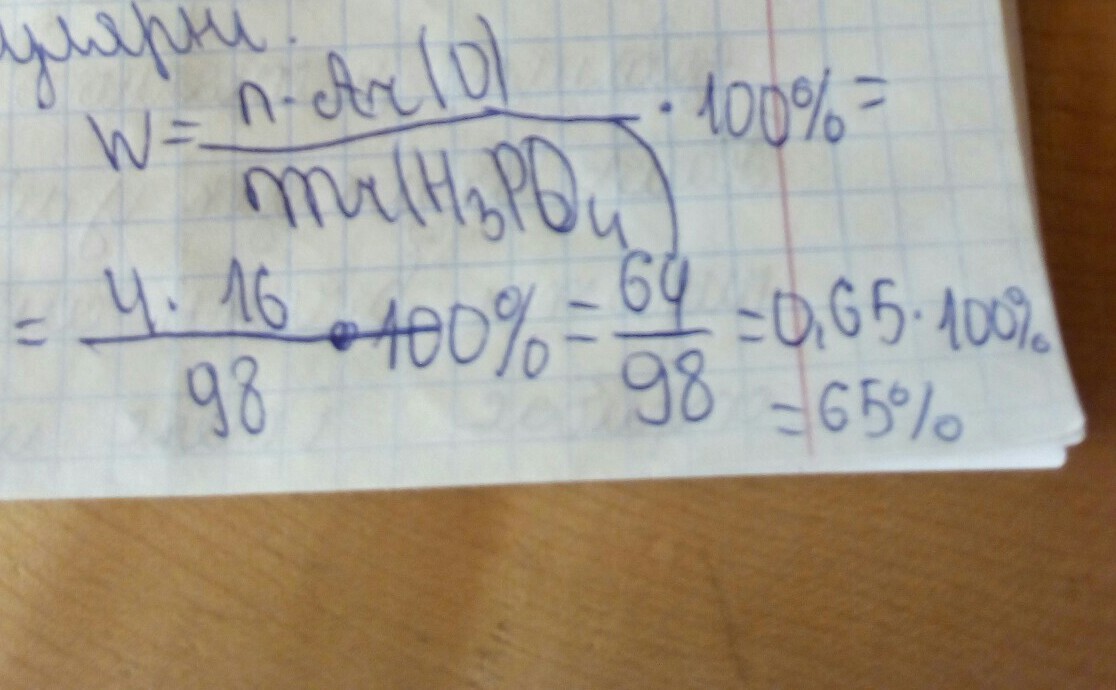 W = n · Ar(O) / Mr(H₃PO₄) · 100% =
= 4 · 16 / 98 · 100% = 64 / 98 = 0,65 · 100%
= 65%